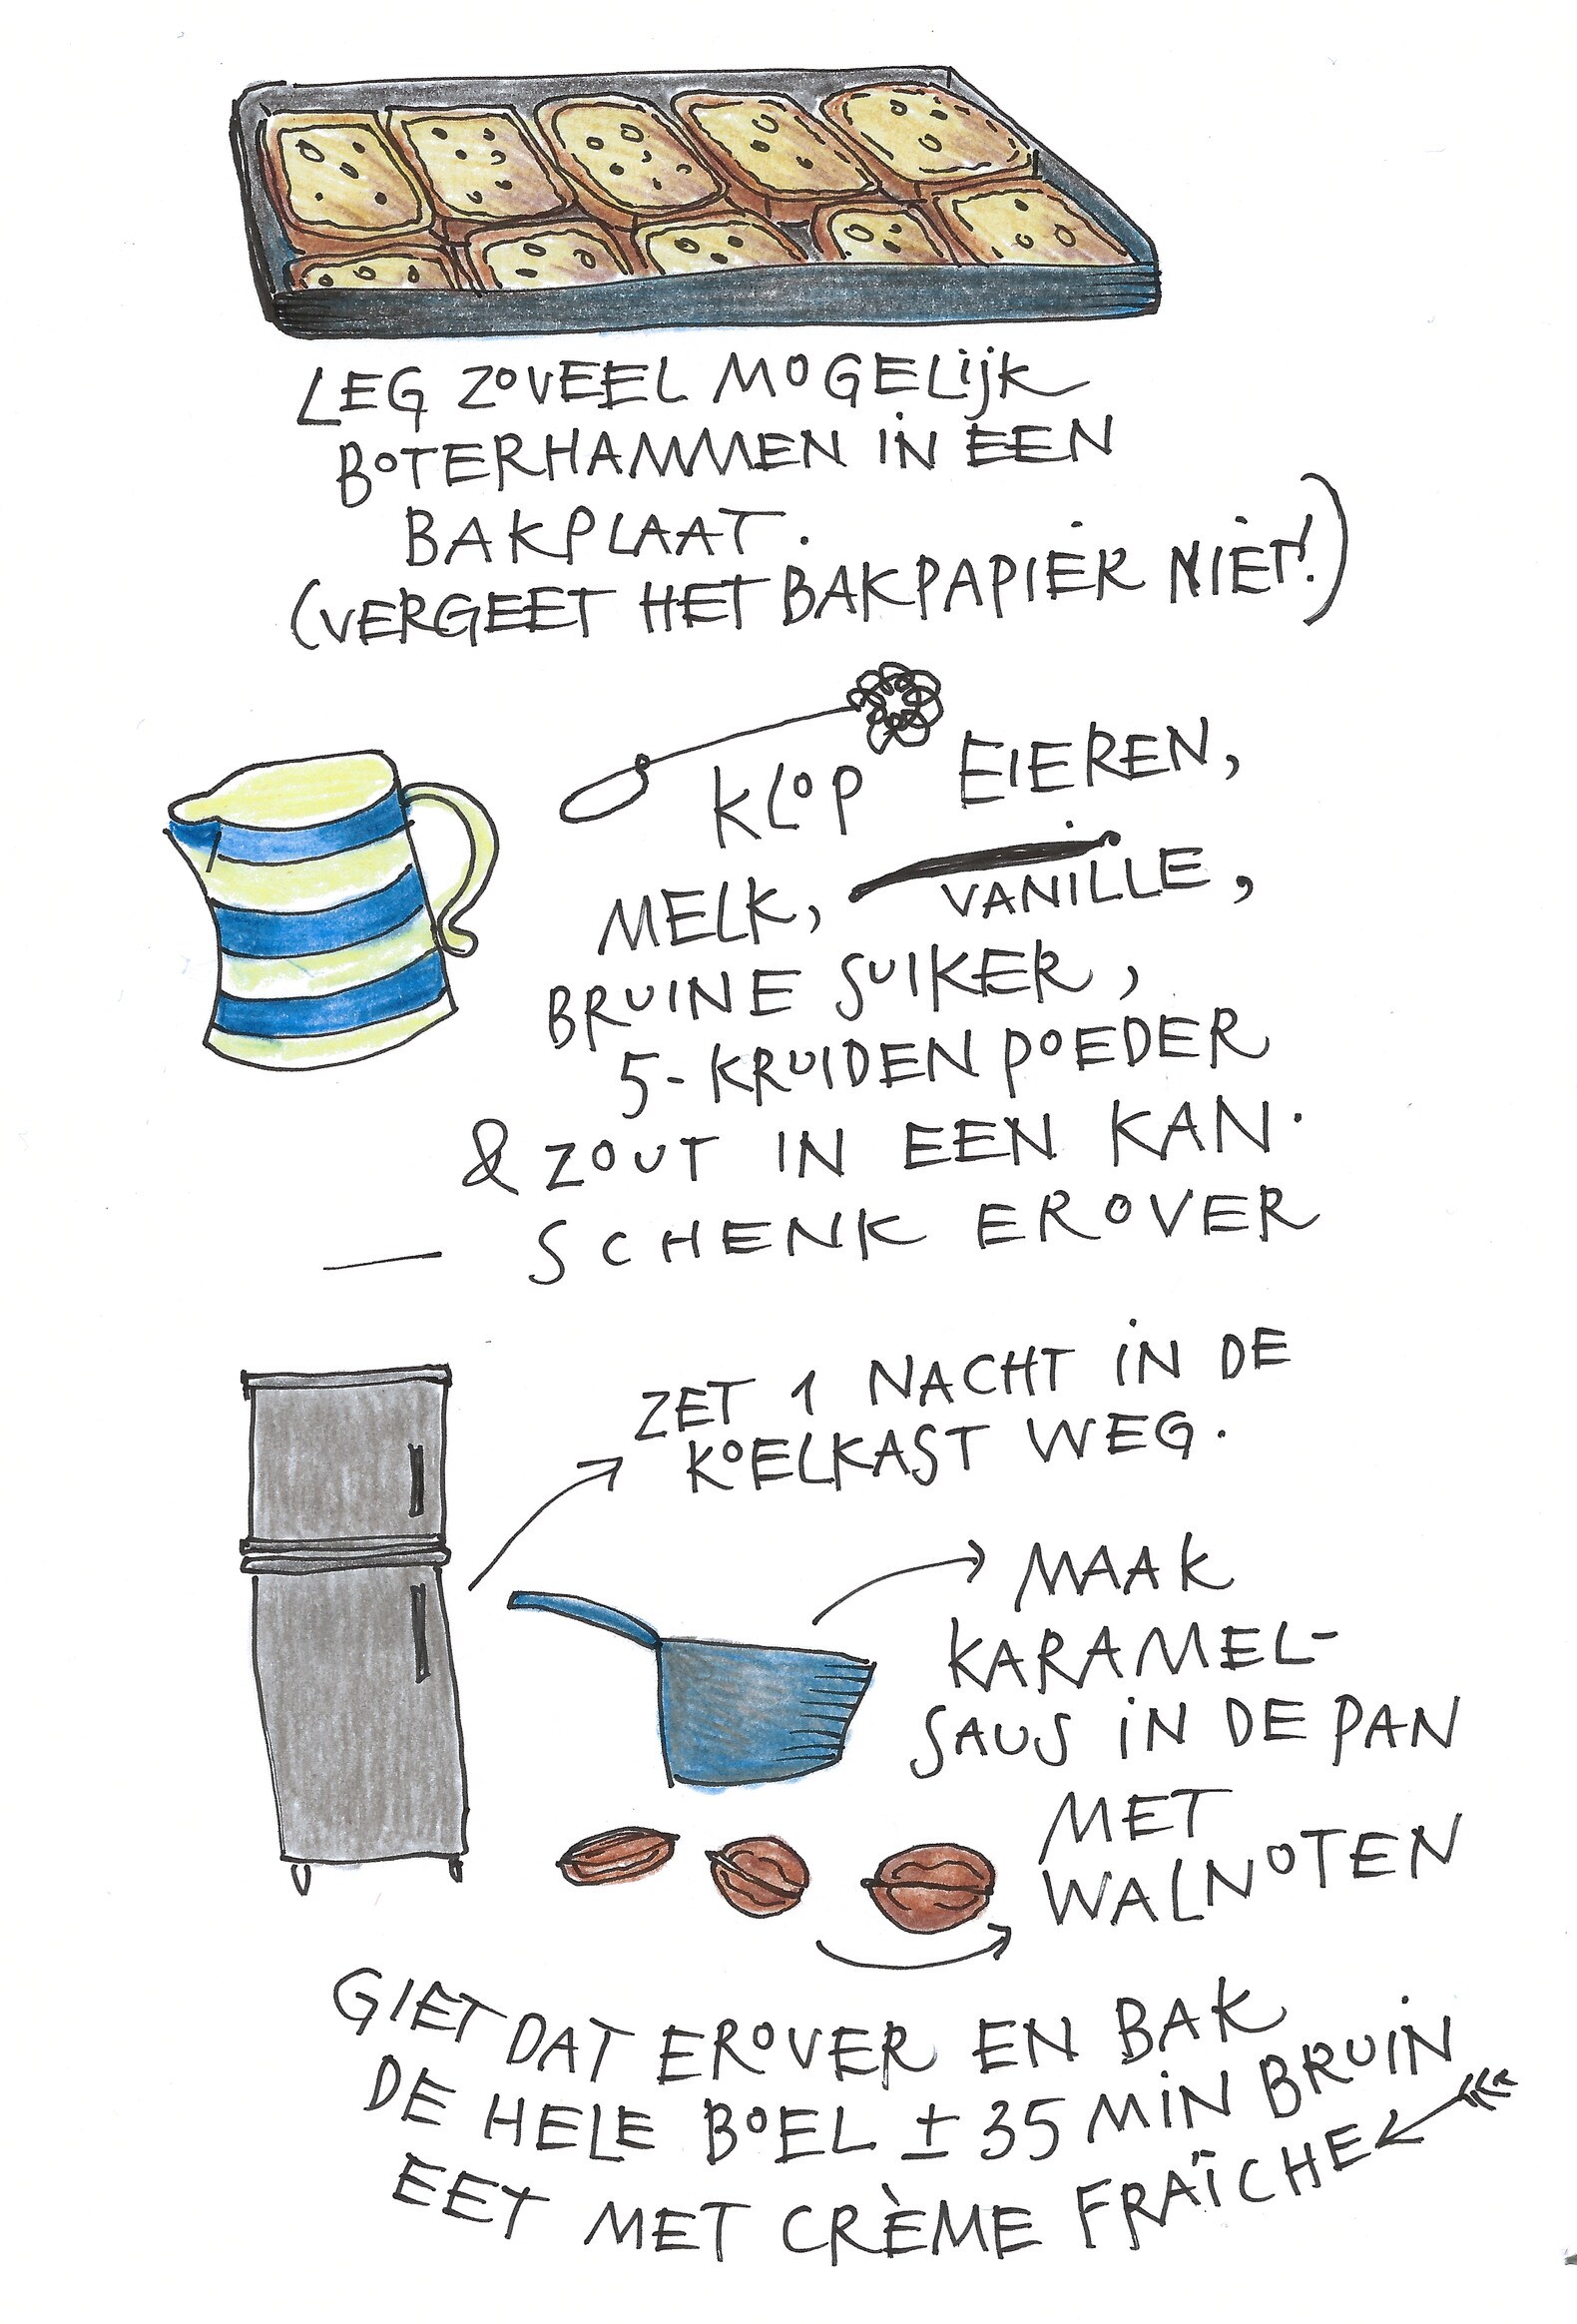 LEG ZOVEEL MOGELIJK
BOTERHAMMEN IN EEN
BAKPLAAT.
(VERGEET HET BAKPAPIER NIET!)
KLOP EIEREN,
MELK, VANILLE,
BRUINE SUIKER,
5-KRUIDENPOEDER
& ZOUT IN EEN KAN.
SCHENK EROVER
ZET 1 NACHT IN DE
KOELKAST WEG.
MAAK
KARAMEL-
SAUS IN DE PAN
MET
WALNOTEN
GIET DAT EROVER EN BAK
DE HELE BOEL ± 35 MIN BRUIN
EET MET CRÈME FRAÎCHE